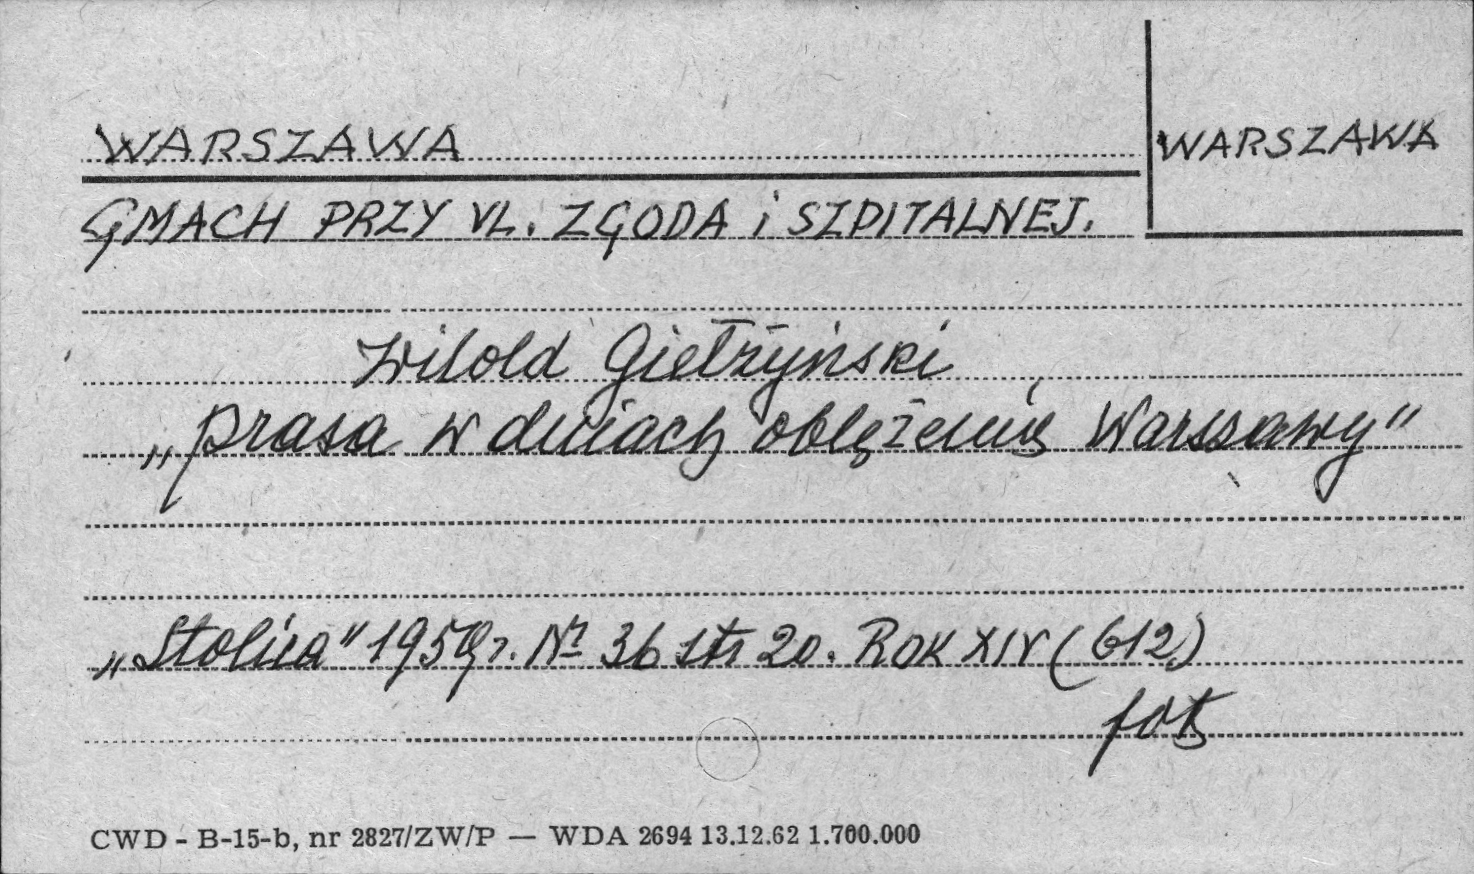 WARSZAWA
WARSZAWA
GMACH PRZY UL. ZGODA i SZPITALNEJ.
Witold Giełżyński
„Prasa w dniach oblężenia Warszawy"
„Stolica" 1959 r. Nr 36 str 20. ROK XIV (612)
fot
CWD - B-15-b, nr 2827/ZW/P — WDA 2694 13.12.62 1.700.000